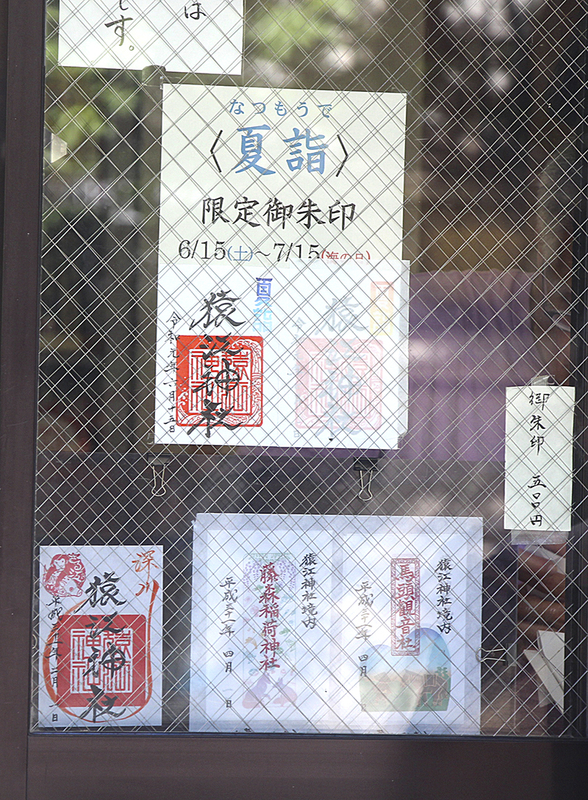 は
です。
なつもうで
〈夏詣〉
限定御朱印
6/15(土)～7/15(海の日)
夏詣
猿江神社
令和元年六月十五日
御朱印 五〇〇円
深川
猿江神社
平成三十一年
猿江神社境内
馬頭観音社
平成三十一年 四月 日
猿江神社境内
藤森稲荷神社
平成三十一年 四月 日